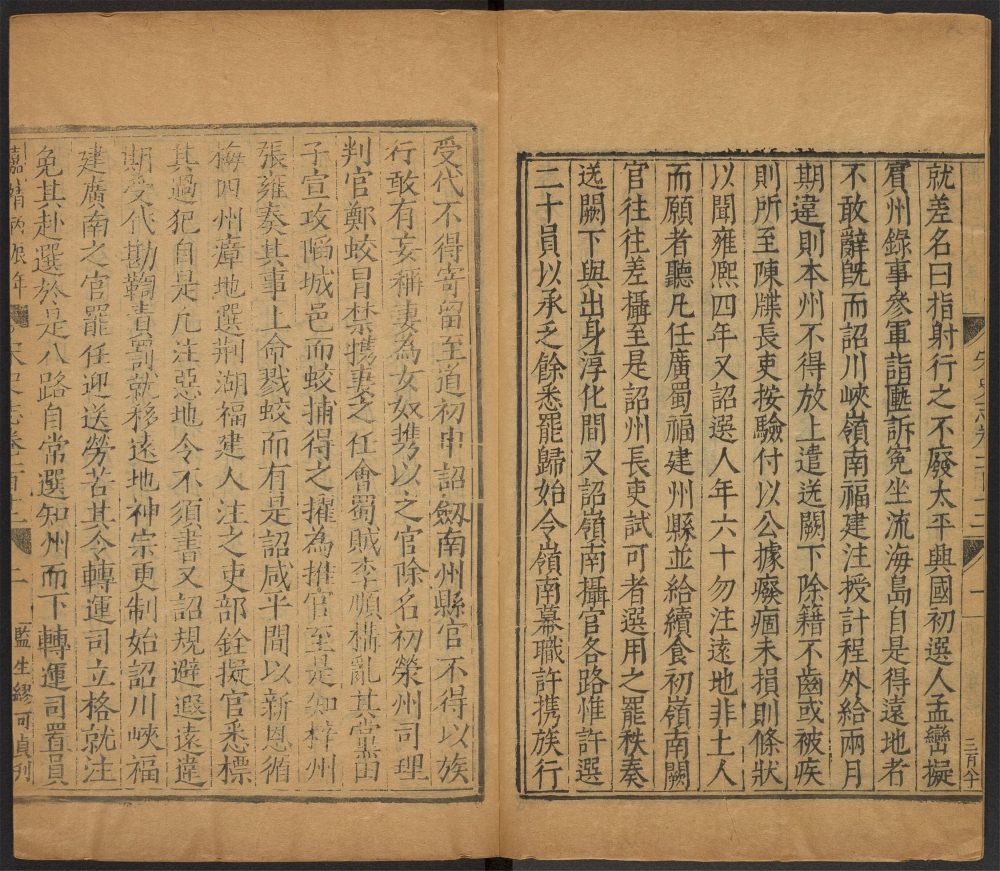 就差名曰指射行之不廢太平興國初選人孟巒擬
賓州錄事參軍詣匭訴冤坐流海島自是得遠地者
不敢辭既而詔川峽嶺南福建注授計程外給兩月
期違則本州不得放上遣送闕下除籍不齒或被疾
則所至陳牒長吏按驗付以公據廢痼未損則條狀
以聞雍熙四年又詔選人年六十勿注遠地非土人
而願者聽凡任廣蜀福建州縣並給續食初嶺南闕
官往往差攝至是詔州長吏試可者選用之罷秩奏
送闕下與出身淳化間又詔嶺南攝官各路惟許選
二十員以承乏餘悉罷歸始令嶺南幕職許携族行
受代不得寄留至道初申詔劔南州縣官不得以族
行敢有妄稱妻為女奴携以之官除名初榮州司理
判官鄭蛟冒禁携妻之任會蜀賊李順搆亂其黨田
子宣攻陷城邑而蛟捕得之擢為推官至是知梓州
張雍奏其事上命戮蛟而有是詔咸平間以新恩循
梅四州瘴地選荆湖福建人注之吏部銓擬官悉標
其過犯自是凡注惡地令不須書又詔規避遐遠違
期受代勘鞫責罰就移遠地神宗更制始詔川峽福
建廣南之官罷任迎送勞苦其令轉運司立格就注
免其赴選於是八路自常選知州而下轉運司置員
嘉靖丙辰年 宋史志卷一百十二 二 監生繆可貞刊